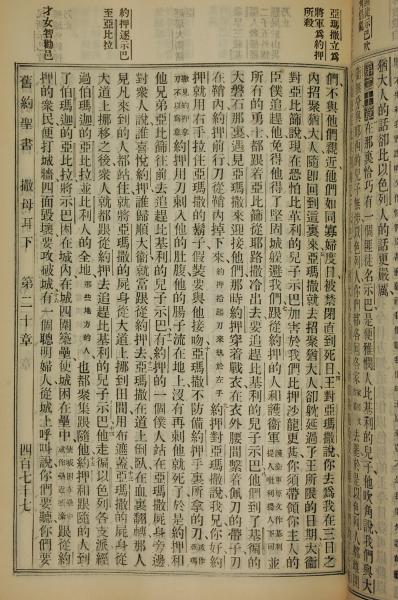 亞瑪撒立爲
將軍爲約押
所殺
約押逐示巴
至亞比拉
才女智勸邑
猶大人的話卻比以色列人的話更嚴厲
在那裏恰巧有一個匪徒名示巴是便雅憫人比基利的兒子他吹角說我們與大
們不與他們親近他們如同寡婦度日被禁閉直到死日王對亞瑪撒說你去爲我在三日之
內招聚猶大人隨卽回到這裏來亞瑪撒就去招聚猶大人卻躭延過了王所限的日期大衞
對亞比篩說現在恐怕比基利的兒子示巴加害於我們比押沙龍更甚你須帶領你主人的
臣僕追趕他免得他得了堅固城躱避我們跟從約押的人和護衞軍
並
所有的勇士都跟着亞比篩從耶路撒冷出去要追趕比基利的兒子示巴他們到了基徧的
大盤石那裏遇見亞瑪撒來迎接他們那時約押穿着戰衣在外腰間繫着佩刀的帶子刀
在鞘內約押前行刀從鞘內掉下來
約押對亞瑪撒說我兄你好約
押就用右手拉住亞瑪撒的鬍子假裝要與他接吻亞瑪撒不防備約押手裏所拿的刀
約押用刀刺入他的肚腹他的腸子流在地上沒有再刺他就死了於是約押和
他兄弟亞比篩往前去追趕比基利的兒子示巴有約押的一個僕人站在亞瑪撒屍身旁邊
對衆人說誰喜悅約押誰歸順大衞就當跟從約押去亞瑪撒在道上倒臥在血裏翻轉那人
見凡來到的人都站住就將亞瑪撒的屍身從大道上挪到田間用布遮蓋亞瑪撒的屍身從
大道上挪移之後衆人就都跟從約押去追趕比基利的兒子示巴他走徧以色列各支派經
過伯瑪迦的亞比拉並比利人的全地
那些地方的人
也都聚集跟隨他約押和跟隨的人到
了伯瑪迦的亞比拉將示巴困在城內在城四圍築壘使城困在壘中
跟從約
押的衆民便打城牆四面毀壞要攻破城有一個聰明婦人從城上呼叫說你們要聽你們要
舊約聖書
撒母耳下
第二十章
四百七十七